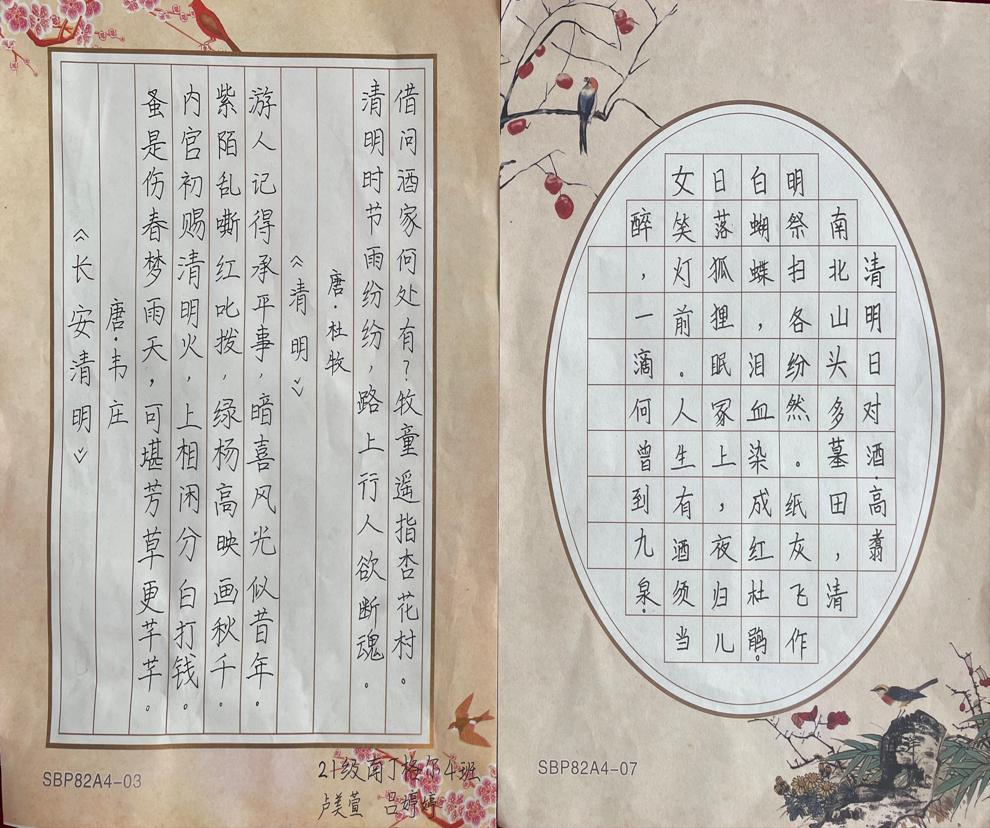 《长安清明》
唐·韦庄
蚤是伤春梦雨天，可堪芳草更芊芊。
内官初赐清明火，上相闲分白打钱。
紫陌乱嘶红叱拨，绿杨高映画秋千。
游人记得承平事，暗喜风光似昔年。
《清明》
唐·杜牧
清明时节雨纷纷，路上行人欲断魂。
借问酒家何处有？牧童遥指杏花村。
SBP82A4-03
21级南丁格尔4班
卢美萱 吕婷婷
清明日对酒·高翥
南北山头多墓田，清
明祭扫各纷然。纸灰飞作
白蝴蝶，泪血染成红杜鹃。
日落狐狸眠冢上，夜归儿
女笑灯前。人生有酒须当
醉，一滴何曾到九泉.
SBP82A4-07